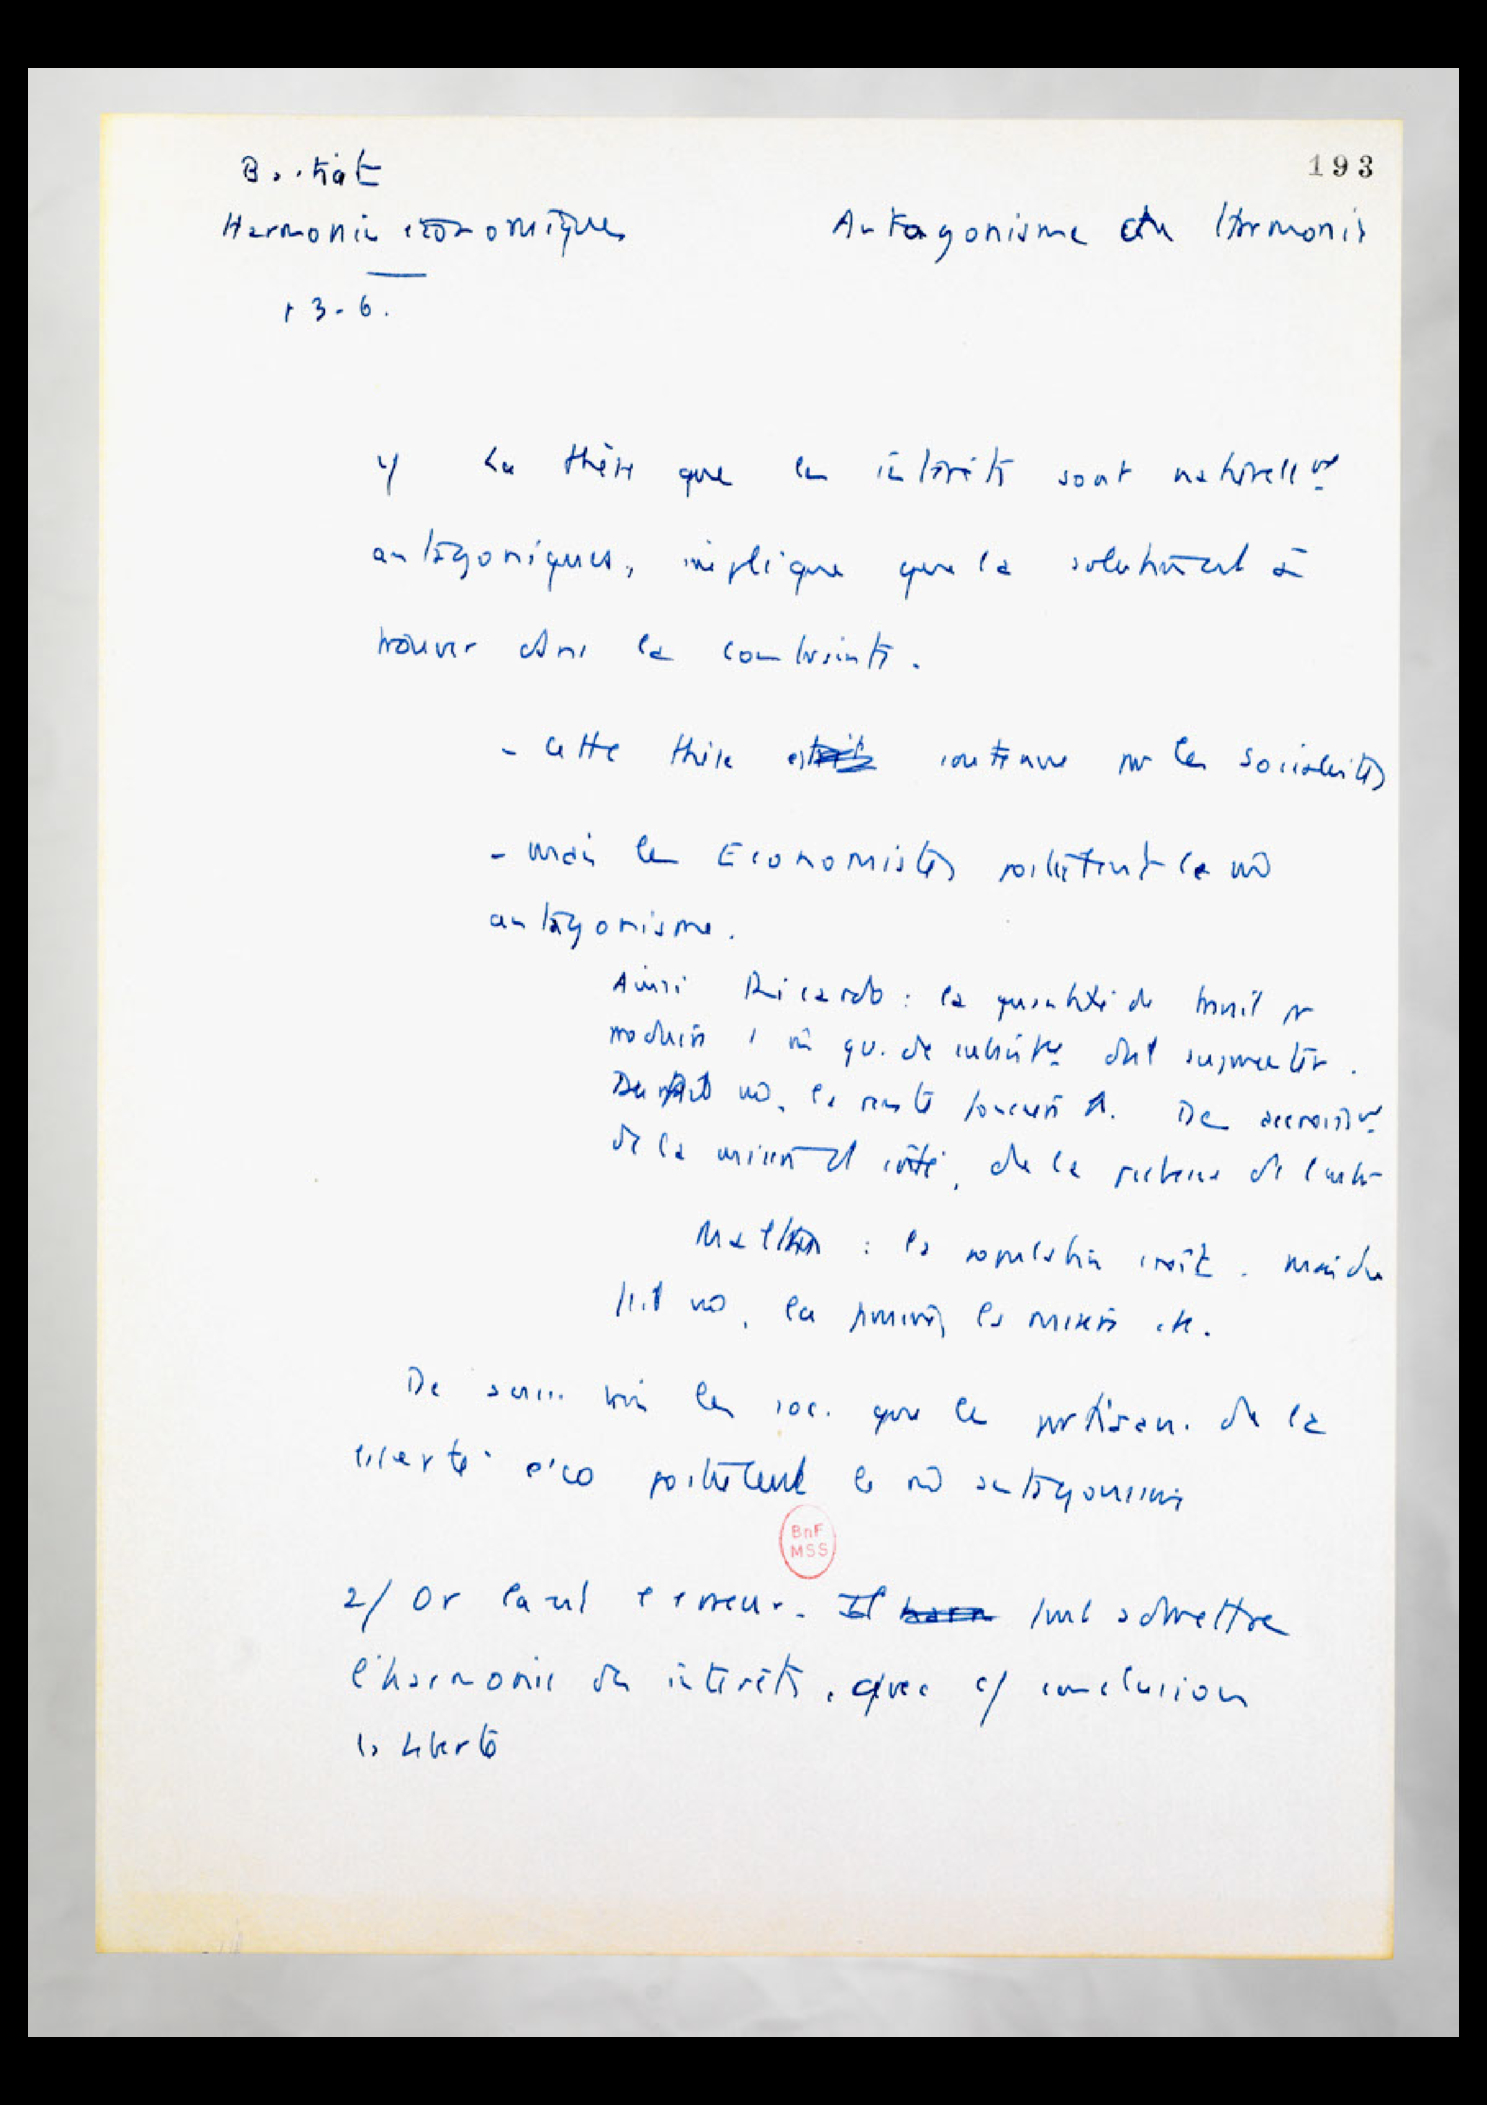 193
Bastiat
Harmonies économiques
Antagonisme ou Harmonie
p 3-6.
1/ La thèse que les intérêts sont naturellemt
antagoniques, implique que la solution est à
trouver dans la contrainte.
- cette thèse contenue par les socialistes
- mais les Economistes postulent le mê
antagonisme.
Ainsi Ricardo : la quantité de travail pr
produire 1 mê qu. de subsistce doit augmenter.
Du fait mê, la rente foncière Donc accroisst
de la misère d'1 côté, de la richesse de l'autre
Malthus : la population croît. mais du
fait mê, la pauvreté, la misère etc.
De sorte les soc. que les partisans de la
liberté éco postulent le mê antagonisme
BnF
MSS
2/ Or la est l'erreur. Il faut admettre
l'harmonie des intérêts, avec c/ conclusion
la liberté